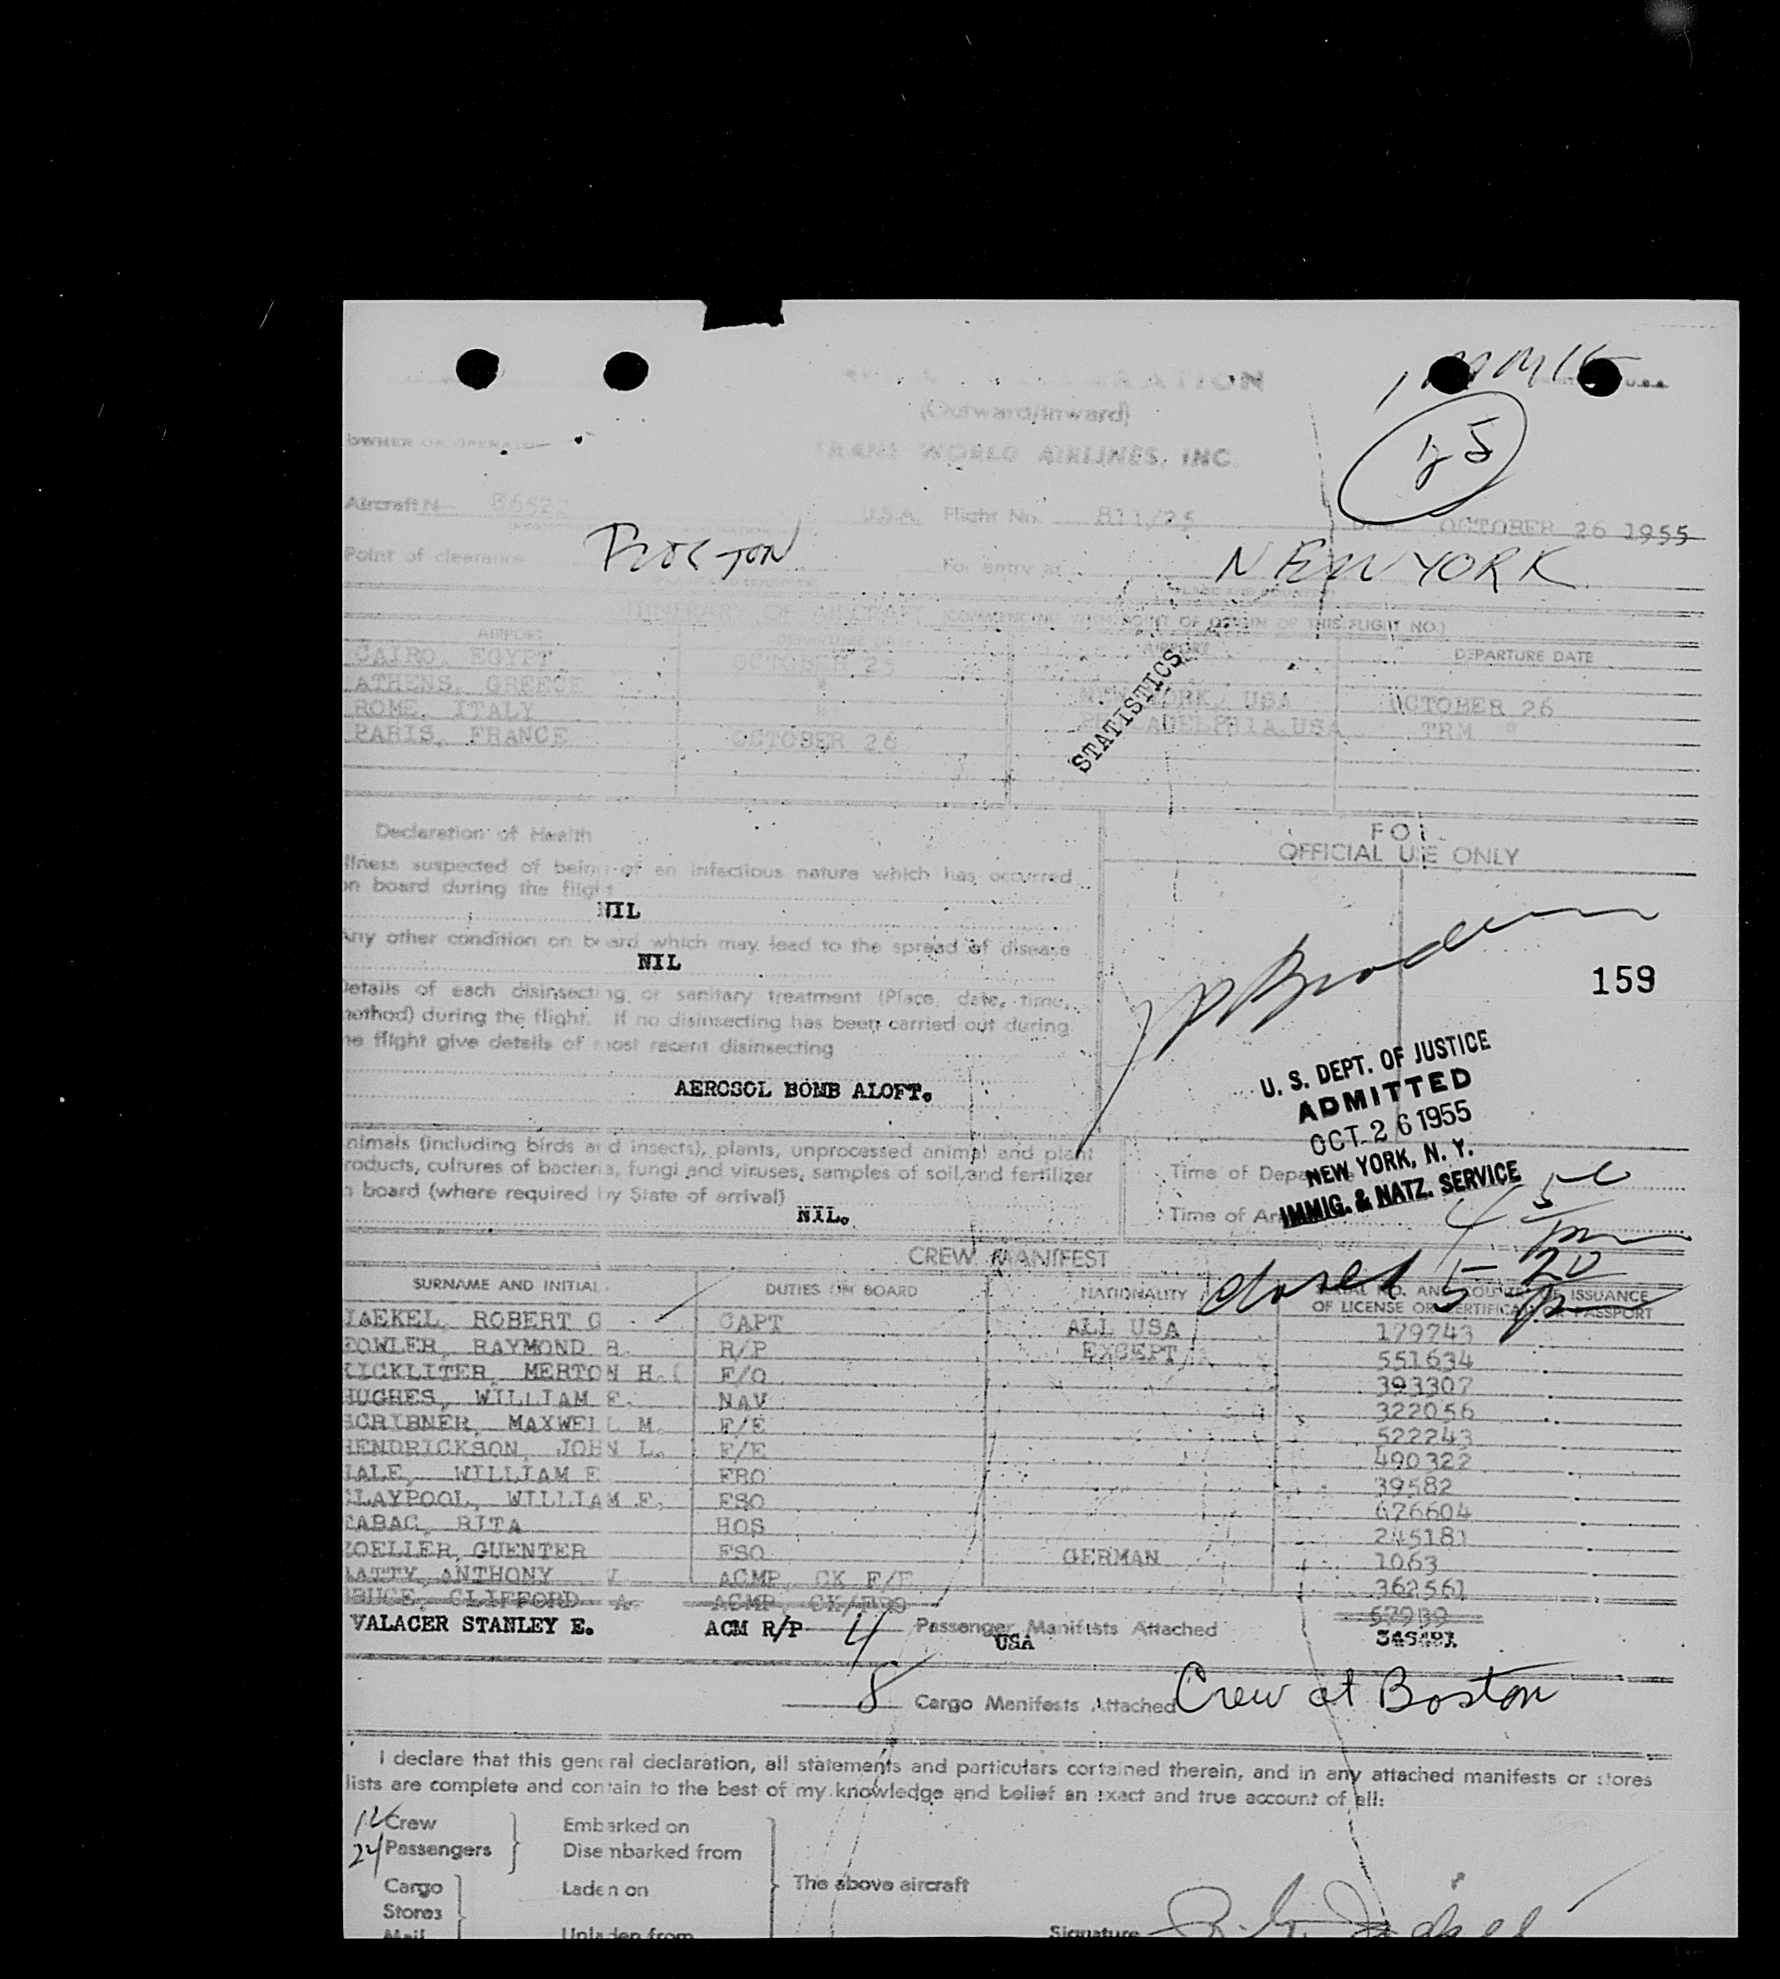 (Outward/Inward)
TRANS WORLD AIRLINES, INC.
U.S.A.
OWNER OR OPERATOR
Aircraft U.S.A. Flight No. 811/25 Date OCTOBER 26 1955
Point of clearance BOSTON For entry at NEW YORK
PLACE AND COUNTRY
ITINERARY OF AIRCRAFT (COMMENCING WITH POINT OF ORIGIN OF THIS FLIGHT NO.)
AIRPORT DEPARTURE DATE AIRPORT DEPARTURE DATE
CAIRO, EGYPT OCTOBER 25
ATHENS, GREECE " NEW YORK, USA OCTOBER 26
ROME, ITALY " PHILADELPHIA, USA TRM "
PARIS, FRANCE OCTOBER 26
STATISTICS
Declaration of Health
FOR
OFFICIAL USE ONLY
illness suspected of being of an infectious nature which has occurred
on board during the flight
NIL
Any other condition on board which may lead to the spread of disease
NIL
159
Details of each disinsecting or sanitary treatment (Place, date, time,
method) during the flight. If no disinsecting has been carried out during
the flight give details of most recent disinsecting
AEROSOL BOMB ALOFT.
U. S. DEPT. OF JUSTICE
ADMITTED
OCT 26 1955
NEW YORK, N. Y.
IMMIG. & NATZ. SERVICE
Animals (including birds and insects), plants, unprocessed animal and plant
products, cultures of bacteria, fungi and viruses, samples of soil and fertilizer
on board (where required by State of arrival)
NIL.
Time of Depa
Time of Ar
CREW MANIFEST
closed 5 20
SURNAME AND INITIAL DUTIES ON BOARD NATIONALITY SERIAL NO. AND COUNTRY OF ISSUANCE
OF LICENSE OR CERTIFICATE OR PASSPORT
JAEKEL, ROBERT G CAPT ALL USA 179743
FOWLER, RAYMOND B. R/P EXCEPT 551634
KICKLITER, MERTON H. F/O 393307
HUGHES, WILLIAM F. NAV 322056
SCRIBNER, MAXWELL M. F/E 522243
HENDRICKSON, JOHN L. F/E 490322
HALE, WILLIAM E FRO 39582
CLAYPOOL, WILLIAM F. FSO 626604
TABAC, RITA HOS 245181
ZOELLER, GUENTER FSO GERMAN 1063
ANTHONY V ACMP, CK F/E 362561
BRUCE, CLIFFORD A. ACMP, CK/FRO 67939
VALACER STANLEY E. ACM R/P USA
4 Passenger Manifests Attached
8 Cargo Manifests Attached Crew at Boston
I declare that this general declaration, all statements and particulars contained therein, and in any attached manifests or stores
lists are complete and contain to the best of my knowledge and belief an exact and true account of all:
12 Crew Embarked on
24 Passengers Disembarked from
Cargo Laden on The above aircraft
Stores
Mail Unladen from
Signature